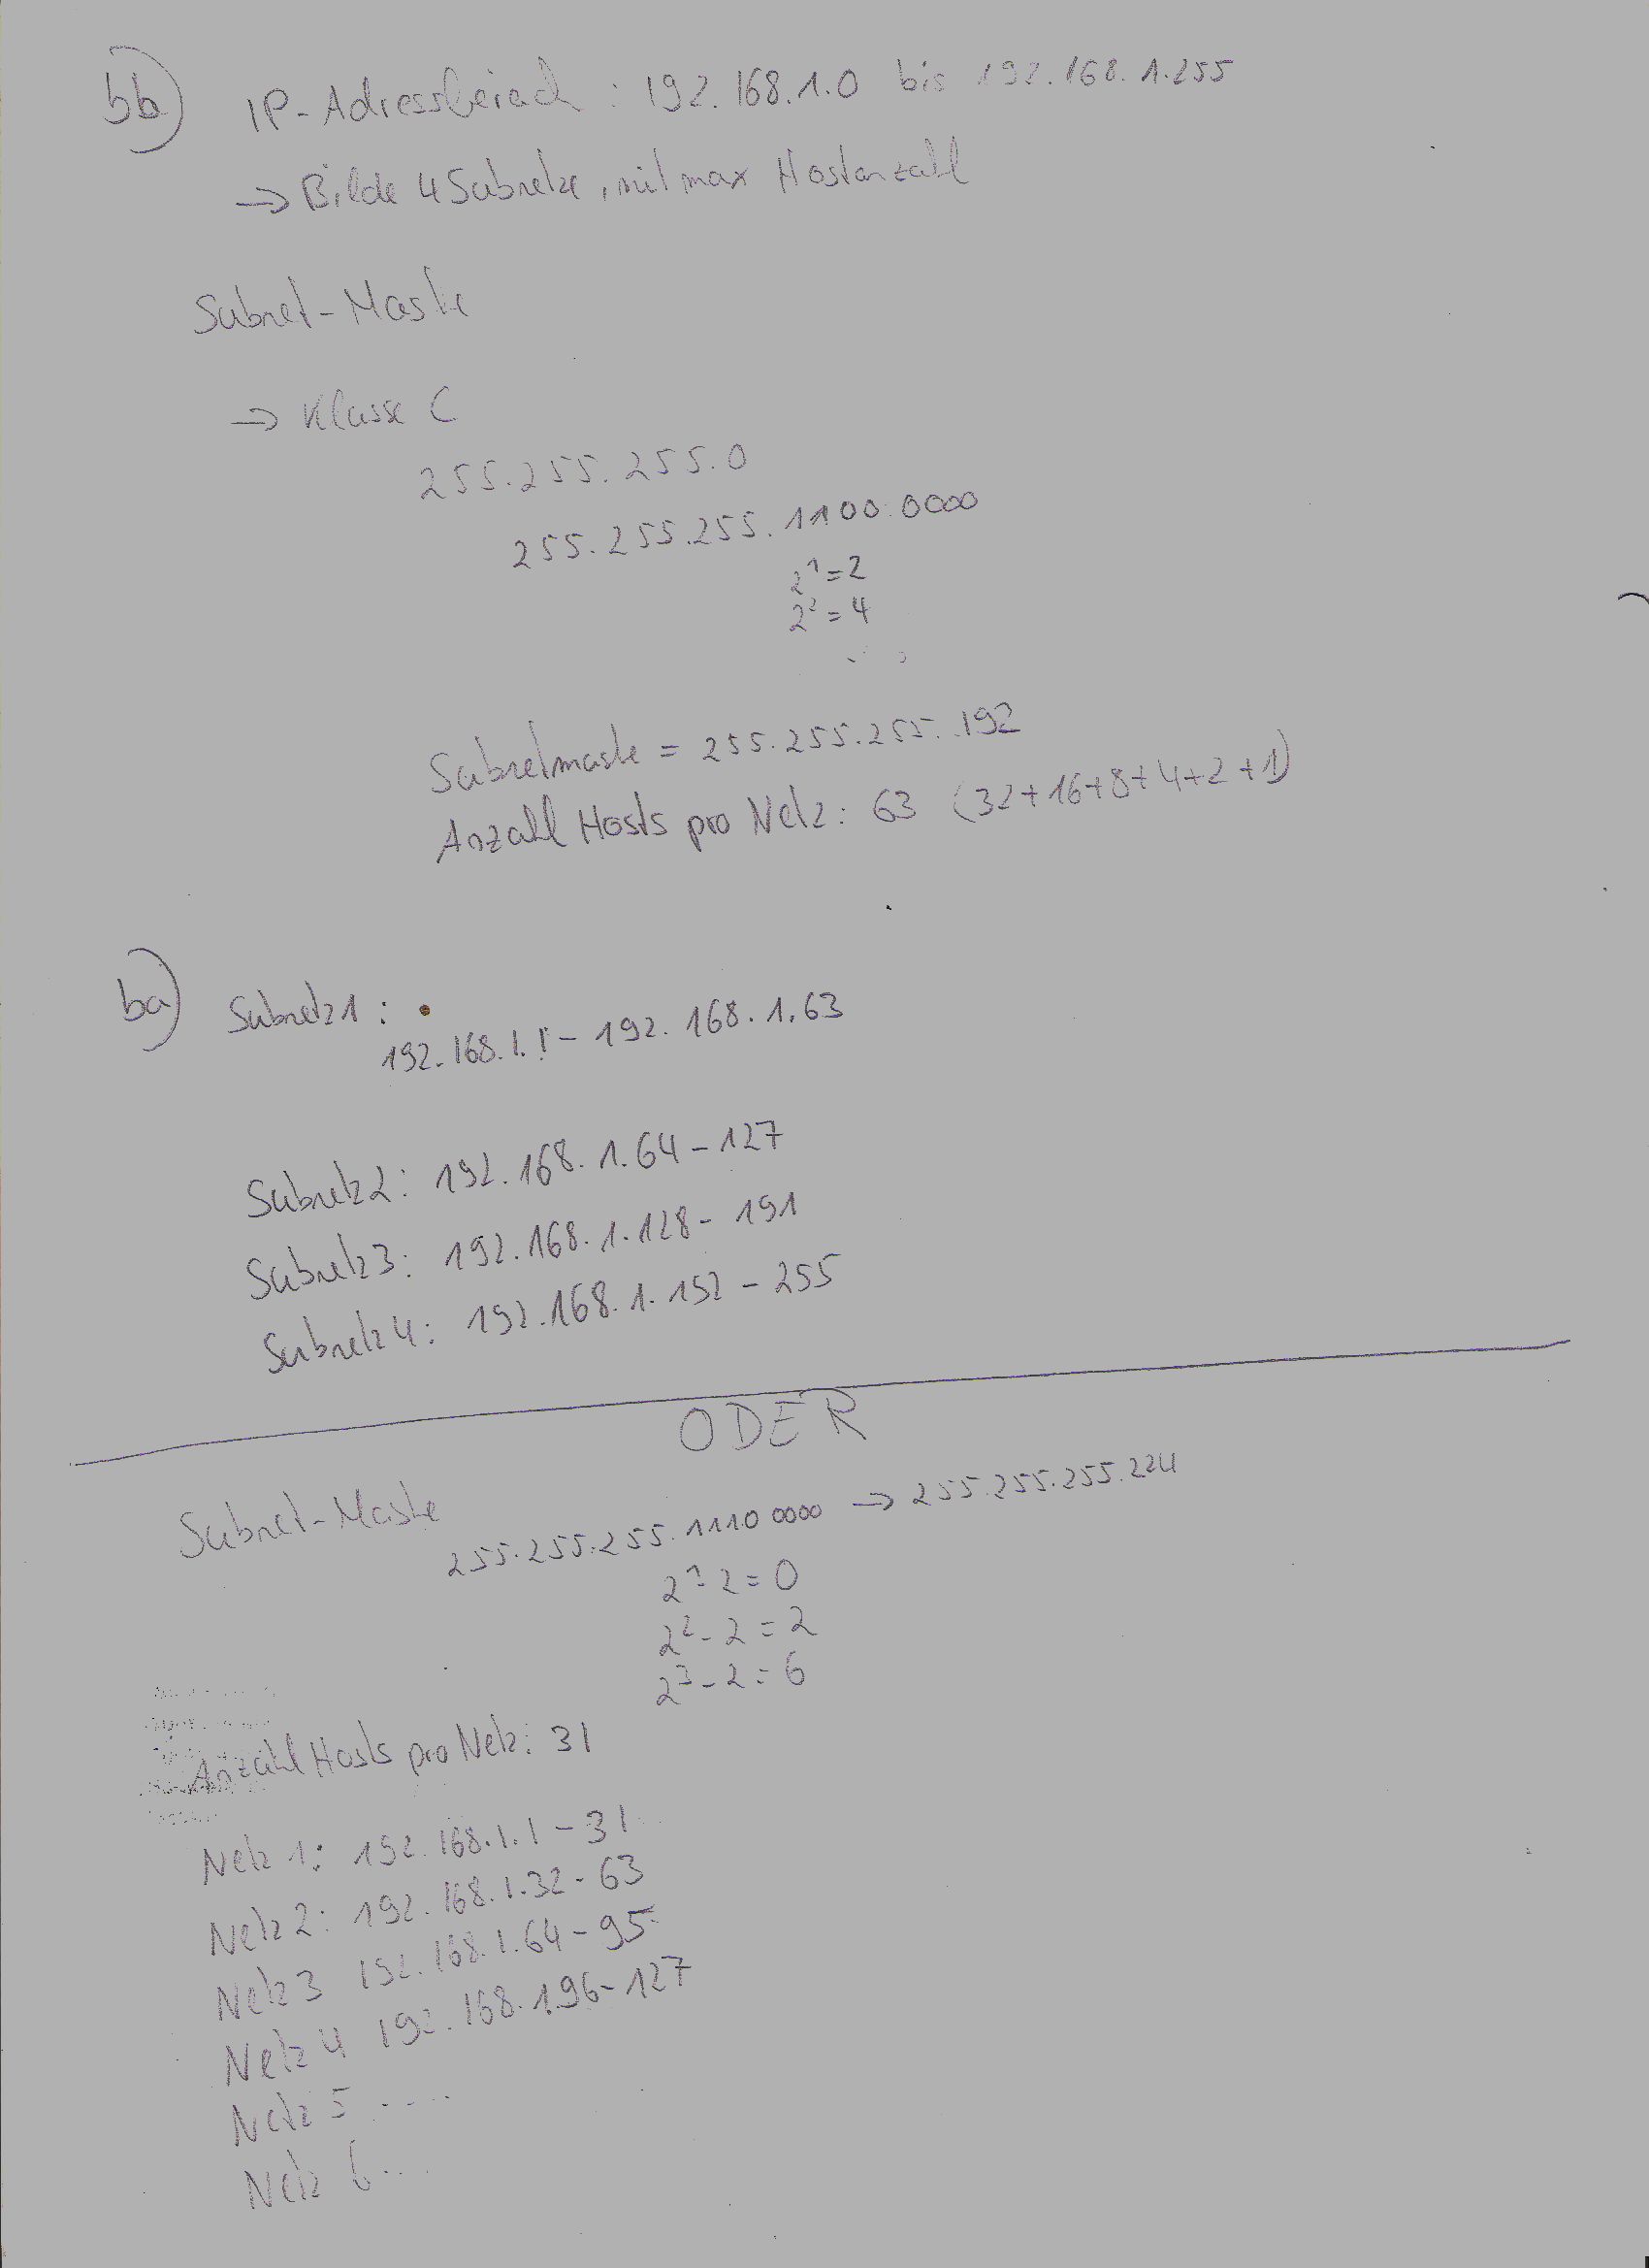 bb) IP-Adressbereich : 192.168.1.0 bis 192.168.1.255
→ Bilde 4 Subnetze, mit max Hostanzahl
Subnet-Maske
→ Klasse C
255.255.255.0
255.255.255.1100 0000
2¹=2
2²=4
Subnetmaske = 255.255.255.192
Anzahl Hosts pro Netz: 63 (32+16+8+4+2+1)
ba) Subnetz1 :
192.168.1.1 - 192.168.1.63
Subnetz2: 192.168.1.64-127
Subnetz3: 192.168.1.128-191
Subnetz4: 192.168.1.192-255
ODER
Subnet-Maske
255.255.255.1110 0000 → 255.255.255.224
2¹-2=0
2²-2=2
2³-2=6
Anzahl Hosts pro Netz: 31
Netz 1: 192.168.1.1-31
Netz 2: 192.168.1.32-63
Netz 3 192.168.1.64-95
Netz 4 192.168.1.96-127
Netz 5 ....
Netz 6...